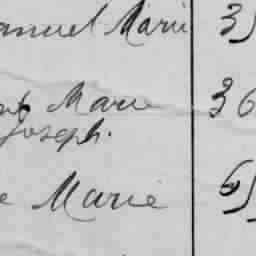 anuel Marie 35
Marie 36
Joseph.
e Marie 65